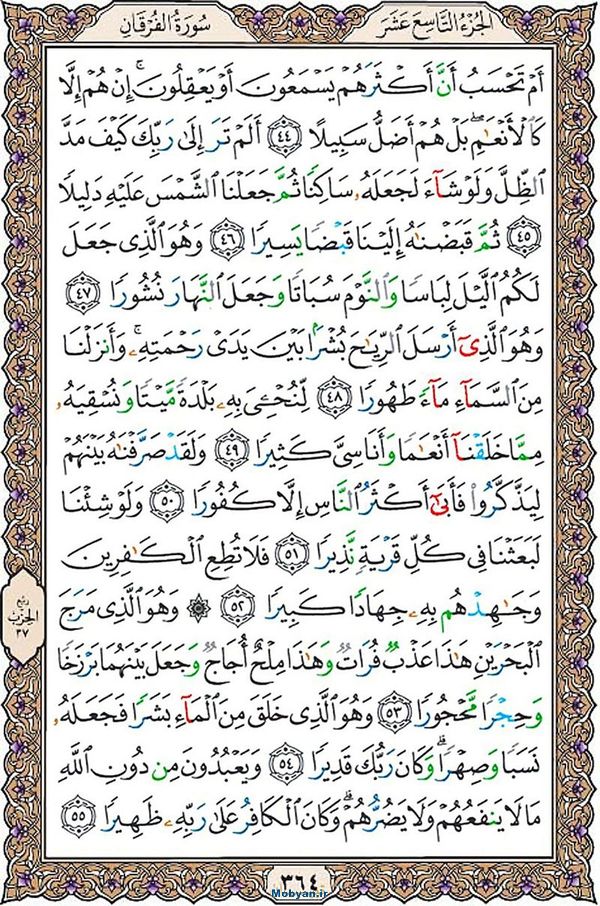 الجزء التاسع عشر
سورة الفرقان
أَمْ تَحْسَبُ أَنَّ أَكْثَرَهُمْ يَسْمَعُونَ أَوْ يَعْقِلُونَ ۚ إِنْ هُمْ إِلَّا
كَالْأَنْعَٰمِ ۖ بَلْ هُمْ أَضَلُّ سَبِيلًا ﴿٤٤﴾ أَلَمْ تَرَ إِلَىٰ رَبِّكَ كَيْفَ مَدَّ
ٱلظِّلَّ وَلَوْ شَآءَ لَجَعَلَهُۥ سَاكِنًا ثُمَّ جَعَلْنَا ٱلشَّمْسَ عَلَيْهِ دَلِيلًا
﴿٤٥﴾ ثُمَّ قَبَضْنَٰهُ إِلَيْنَا قَبْضًا يَسِيرًا ﴿٤٦﴾ وَهُوَ ٱلَّذِى جَعَلَ
لَكُمُ ٱلَّيْلَ لِبَاسًا وَٱلنَّوْمَ سُبَاتًا وَجَعَلَ ٱلنَّهَارَ نُشُورًا ﴿٤٧﴾
وَهُوَ ٱلَّذِىٓ أَرْسَلَ ٱلرِّيَٰحَ بُشْرًۢا بَيْنَ يَدَىْ رَحْمَتِهِۦ ۚ وَأَنزَلْنَا
مِنَ ٱلسَّمَآءِ مَآءً طَهُورًا ﴿٤٨﴾ لِّنُحْۦِىَ بِهِۦ بَلْدَةً مَّيْتًا وَنُسْقِيَهُۥ
مِمَّا خَلَقْنَآ أَنْعَٰمًا وَأَنَاسِىَّ كَثِيرًا ﴿٤٩﴾ وَلَقَدْ صَرَّفْنَٰهُ بَيْنَهُمْ
لِيَذَّكَّرُوا۟ فَأَبَىٰٓ أَكْثَرُ ٱلنَّاسِ إِلَّا كُفُورًا ﴿٥٠﴾ وَلَوْ شِئْنَا
لَبَعَثْنَا فِى كُلِّ قَرْيَةٍ نَّذِيرًا ﴿٥١﴾ فَلَا تُطِعِ ٱلْكَٰفِرِينَ
وَجَٰهِدْهُم بِهِۦ جِهَادًا كَبِيرًا ﴿٥٢﴾ ۞ وَهُوَ ٱلَّذِى مَرَجَ
ٱلْبَحْرَيْنِ هَٰذَا عَذْبٌ فُرَاتٌ وَهَٰذَا مِلْحٌ أُجَاجٌ وَجَعَلَ بَيْنَهُمَا بَرْزَخًا
وَحِجْرًا مَّحْجُورًا ﴿٥٣﴾ وَهُوَ ٱلَّذِى خَلَقَ مِنَ ٱلْمَآءِ بَشَرًا فَجَعَلَهُۥ
نَسَبًا وَصِهْرًا ۗ وَكَانَ رَبُّكَ قَدِيرًا ﴿٥٤﴾ وَيَعْبُدُونَ مِن دُونِ ٱللَّهِ
مَا لَا يَنفَعُهُمْ وَلَا يَضُرُّهُمْ ۗ وَكَانَ ٱلْكَافِرُ عَلَىٰ رَبِّهِۦ ظَهِيرًا ﴿٥٥﴾
ربع
الحزب
٣٧
٣٦٤
Mobyan.ir